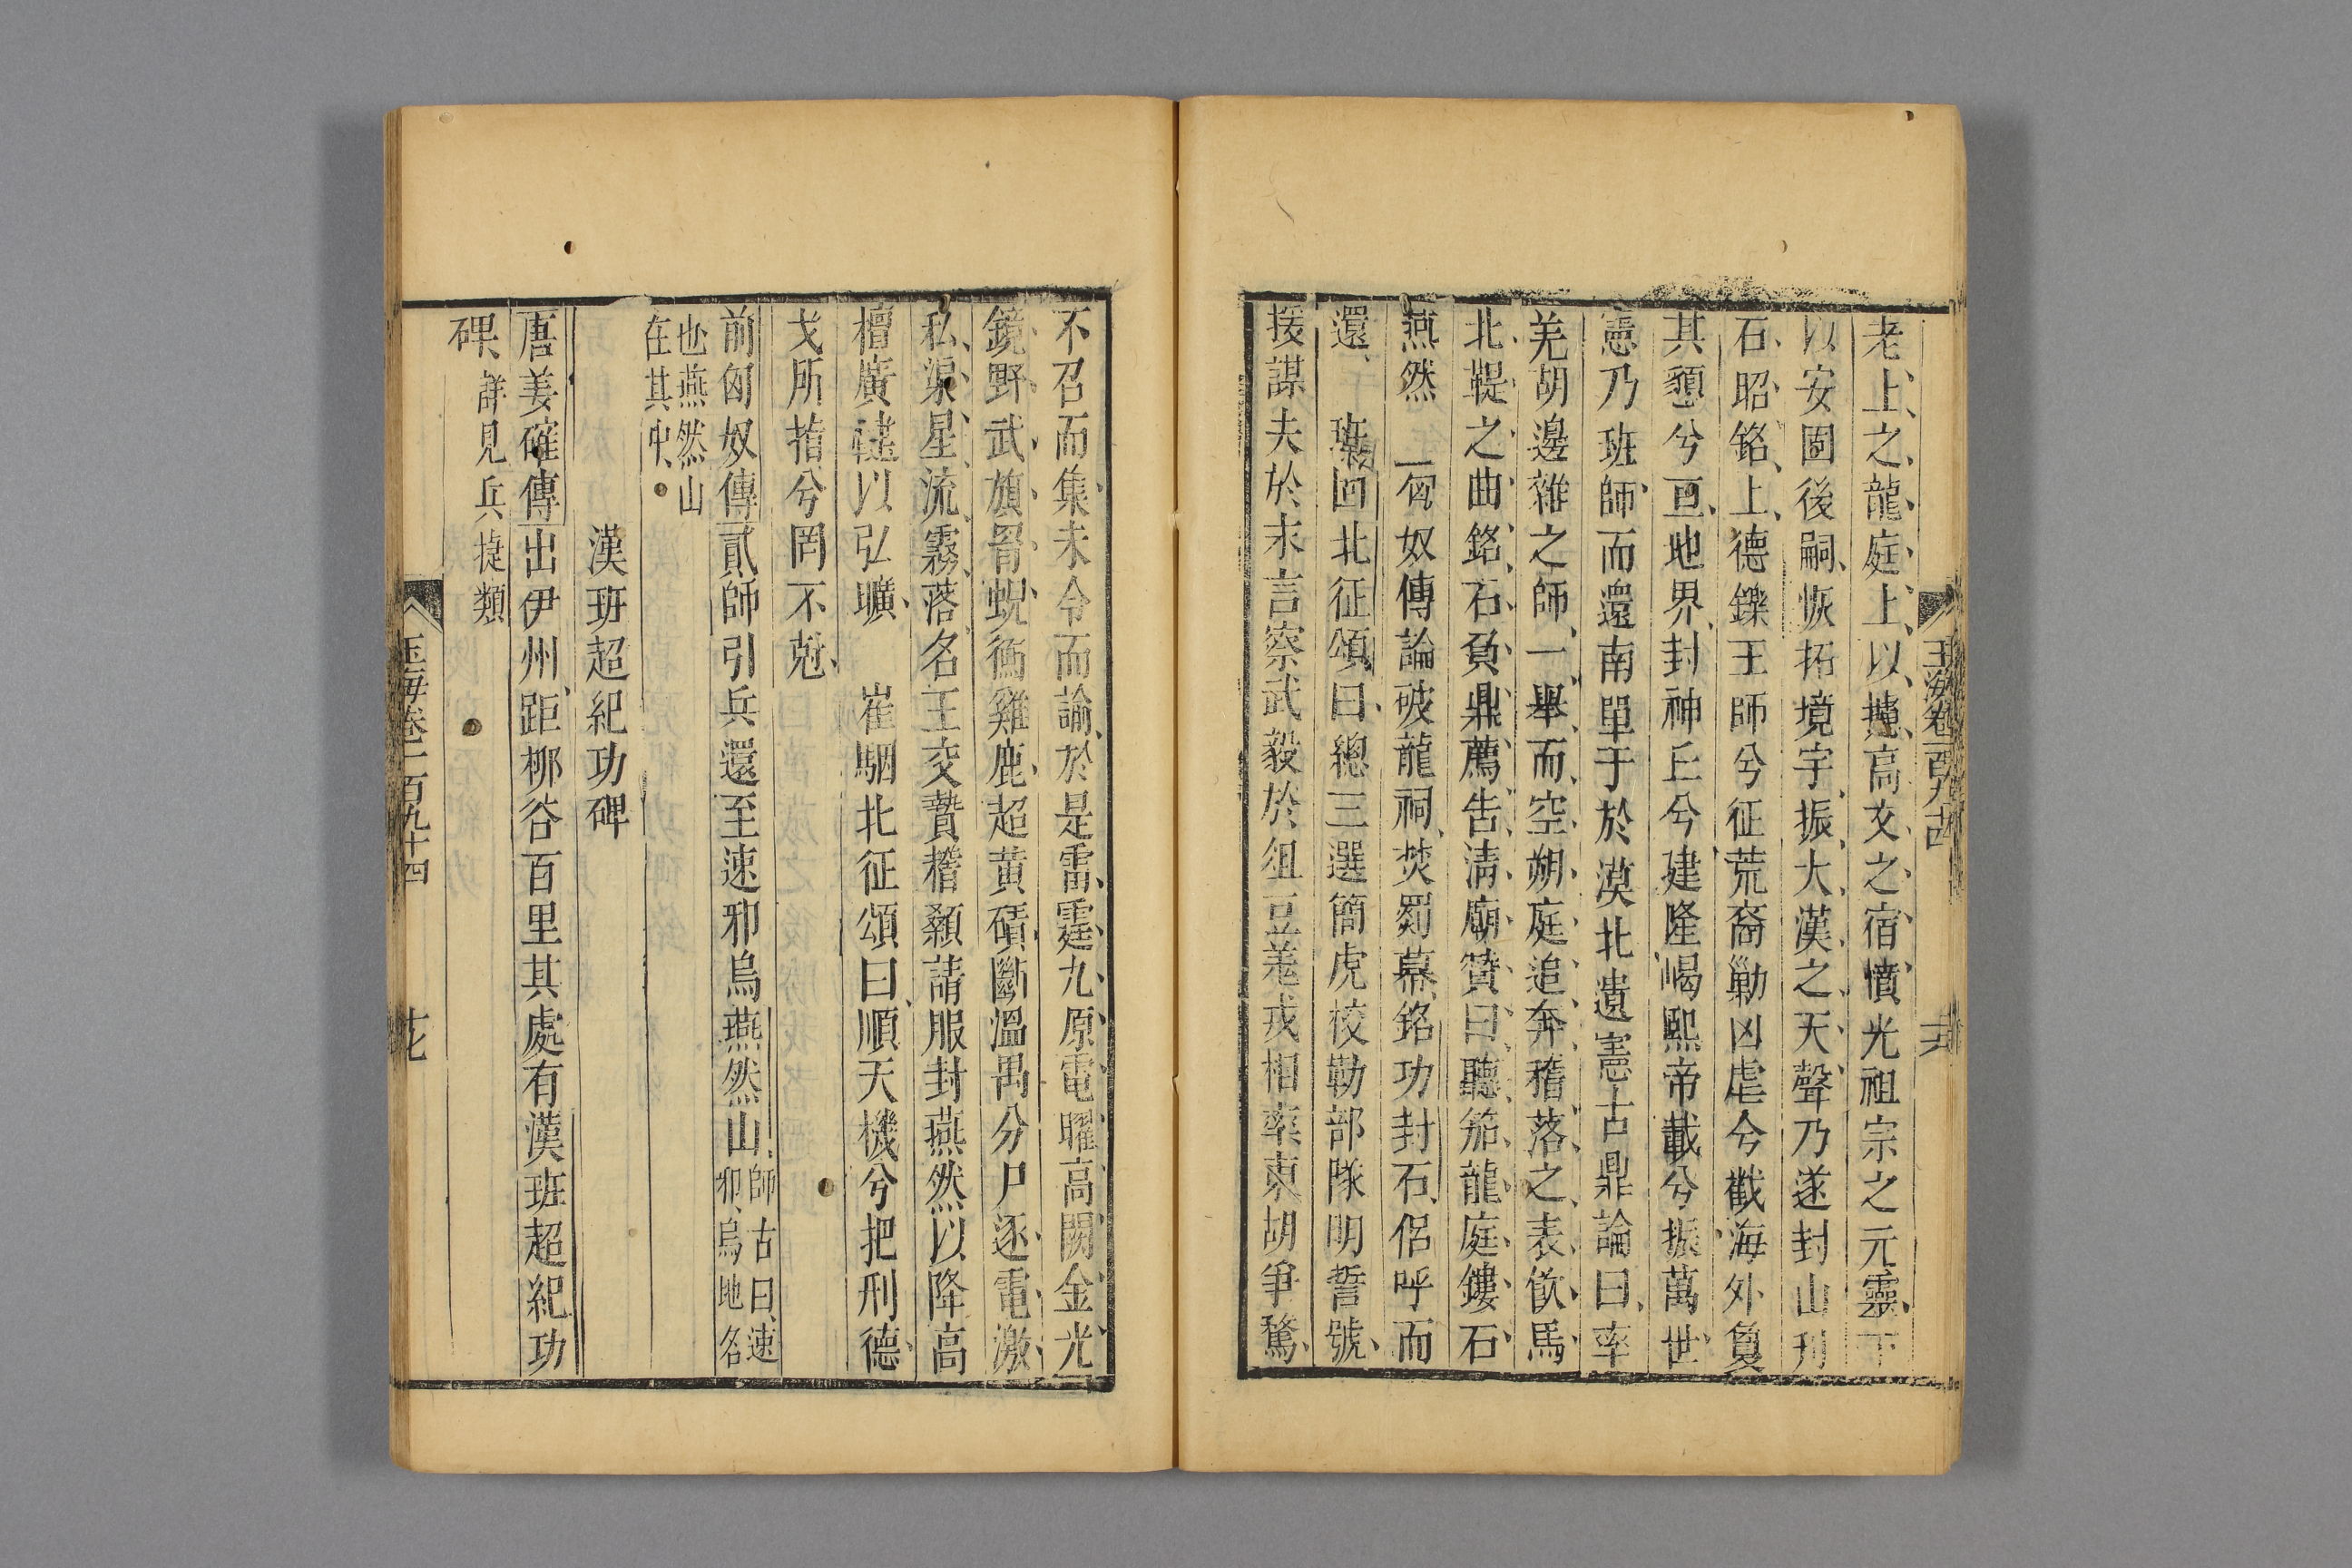 老上之龍庭上以攄高文之宿憤光祖宗之元靈下
以安固後嗣恢拓境宇振大漢之天聲乃遂封山刋
石昭銘上德鑠王師兮征荒裔勦凶虐兮截海外敻
其邈兮亘地界封神丘兮建隆嵑熙帝載兮振萬世
憲乃班師而還南單于於漠北遺憲古鼎論曰率
羌胡邊雜之師一舉而空朔庭追奔稽落之表飲馬
北鞮之曲銘石負鼎薦告清廟贊曰聽笳龍庭鏤石
燕然 匈奴傳論破龍祠焚罽幕銘功封石侶呼而
還 班固北征頌曰總三選簡虎校勒部隊明誓號
援謀夫於末言察武毅於俎豆羌戎相率東胡爭騖
玉海卷一百九十四
不召而集未令而諭於是雷霆九原電曜高闕金光
鏡野武旂胥蜺衝雞鹿超黃磧斷溫禺分尸逐電激
私渠星流霧落名王交贄稽顙請服封燕然以降高
檀廣鞬以弘壙 崔駰北征頌曰順天機兮把刑德
戈所指兮罔不尅
前匈奴傳貳師引兵還至速邪烏燕然山師古曰速邪烏地名
也燕然山在其中
漢班超紀功碑
唐姜確傳出伊州距栁谷百里其處有漢班超紀功
碑詳見兵捷類
玉海卷一百九十四
花